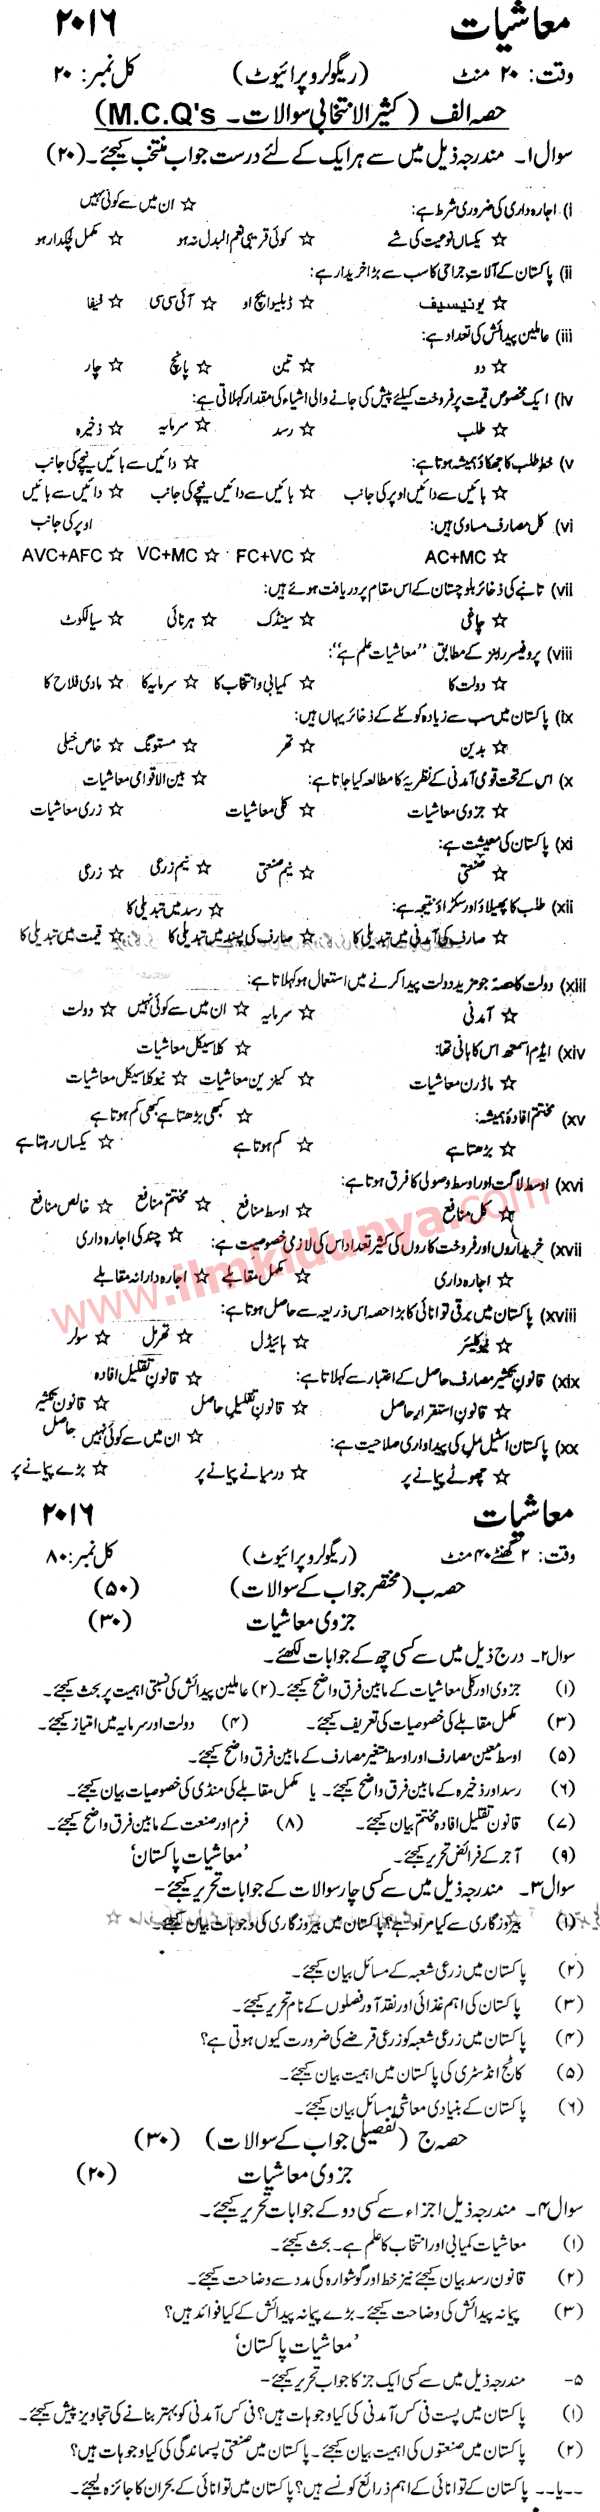 معاشیات ۲۰۱۶
وقت: ۲۰ منٹ (ریگولر و پرائیوٹ) کل نمبر: ۲۰
حصہ الف (کثیر الانتخابی سوالات۔ M.C.Q's)
سوال ۱۔ مندرجہ ذیل میں سے ہر ایک کے لئے درست جواب منتخب کیجئے۔ (۲۰)
(i اجارہ داری کی ضروری شرط ہے: ☆ ان میں سے کوئی نہیں
☆ یکساں نوعیت کی شے ☆ کوئی قریبی نعم البدل نہ ہو ☆ مکمل لچکدار ہو
(ii پاکستان کے آلات جراحی کا سب سے بڑا خریدار ہے:
☆ یونیسیف ☆ ڈبلیو ایچ او ☆ آئی سی سی ☆ فیفا
(iii عاملین پیدائش کی تعداد ہے:
☆ دو ☆ تین ☆ پانچ ☆ چار
(iv ایک مخصوص قیمت پر فروخت کیلئے پیش کی جانے والی اشیاء کی مقدار کہلاتی ہے:
☆ طلب ☆ رسد ☆ سرمایہ ☆ ذخیرہ
(v خط طلب کا جھکاؤ ہمیشہ ہوتا ہے: ☆ دائیں سے بائیں نیچے کی جانب
☆ بائیں سے دائیں اوپر کی جانب ☆ بائیں سے دائیں نیچے کی جانب ☆ دائیں سے بائیں
(vi کل مصارف مساوی ہیں: اوپر کی جانب
☆ AC+MC ☆ FC+VC ☆ VC+MC ☆ AVC+AFC
(vii تانبے کی ذخائر بلوچستان کے اس مقام پر دریافت ہوئے ہیں:
☆ چاغی ☆ سینڈک ☆ ہرنائی ☆ سیالکوٹ
(viii پروفیسر رابنز کے مطابق "معاشیات علم ہے":
☆ دولت کا ☆ کمیابی و انتخاب کا ☆ سرمایہ کا ☆ مادی فلاح کا
(ix پاکستان میں سب سے زیادہ کوئلے کے ذخائر یہاں ہیں:
☆ بدین ☆ تھر ☆ مستونگ ☆ خاص خیلی
(x اس کے تحت قومی آمدنی کے نظریہ کا مطالعہ کیا جاتا ہے: ☆ بین الاقوامی معاشیات
☆ جزوی معاشیات ☆ کلی معاشیات ☆ زری معاشیات
(xi پاکستان کی معیشت ہے:
☆ صنعتی ☆ نیم صنعتی ☆ نیم زرعی ☆ زرعی
(xii طلب کا پھیلاؤ اور سکڑاؤ نتیجہ ہے: ☆ رسد میں تبدیلی کا
☆ صارف کی آمدنی میں تبدیلی کا ☆ صارف کی پسند میں تبدیلی کا ☆ قیمت میں تبدیلی کا
(xiii دولت کا حصہ جو مزید دولت پیدا کرنے میں استعمال ہو کہلاتا ہے:
☆ آمدنی ☆ سرمایہ ☆ ان میں سے کوئی نہیں ☆ دولت
(xiv ایڈم اسمتھ اس کا بانی تھا: ☆ کلاسیکل معاشیات
☆ ماڈرن معاشیات ☆ کینزین معاشیات ☆ نیو کلاسیکل معاشیات
(xv مختتم افادہ ہمیشہ: ☆ کبھی بڑھتا ہے کبھی کم ہوتا ہے
☆ بڑھتا ہے ☆ کم ہوتا ہے ☆ یکساں رہتا ہے
(xvi اوسط لاگت اور اوسط وصولی کا فرق ہوتا ہے:
☆ کل منافع ☆ اوسط منافع ☆ مختتم منافع ☆ خالص منافع
(xvii خریداروں اور فروخت کاروں کی کثیر تعداد اس کی لازمی خصوصیت ہے: ☆ چند کی اجارہ داری
☆ اجارہ داری ☆ مکمل مقابلے ☆ اجارہ دارانہ مقابلے
www.ilmkidunya.com
(xviii پاکستان میں برقی توانائی کا بڑا حصہ اس ذریعہ سے حاصل ہوتا ہے:
☆ نیوکلیئر ☆ ہائیڈل ☆ تھرمل ☆ سولر
(xix قانون تکثیر مصارف حاصل کے اعتبار سے کہلاتا ہے: ☆ قانون تقلیل افادہ
☆ قانون استقرار حاصل ☆ قانون تقلیل حاصل ☆ قانون تکثیر حاصل
(xx پاکستان اسٹیل مل کی پیداواری صلاحیت ہے: ☆ ان میں سے کوئی نہیں
☆ چھوٹے پیمانے پر ☆ درمیانے پیمانے پر ☆ بڑے پیمانے پر
معاشیات ۲۰۱۶
وقت: ۲ گھنٹے ۴۰ منٹ (ریگولر و پرائیوٹ) کل نمبر: ۸۰
حصہ ب (مختصر جواب کے سوالات) (۵۰)
جزوی معاشیات (۳۰)
سوال ۲۔ درج ذیل میں سے کسی چھ کے جوابات لکھئے۔
(۱) جزوی اور کلی معاشیات کے مابین فرق واضح کیجئے۔ (۲) عاملین پیدائش کی نسبتی اہمیت پر بحث کیجئے۔
(۳) مکمل مقابلے کی خصوصیات کی تعریف کیجئے۔ (۴) دولت اور سرمایہ میں امتیاز کیجئے۔
(۵) اوسط معین مصارف اور اوسط متغیر مصارف کے مابین فرق واضح کیجئے۔
(۶) رسد اور ذخیرہ کے مابین فرق واضح کیجئے۔ یا مکمل مقابلے کی منڈی کی خصوصیات بیان کیجئے۔
(۷) قانون تقلیل افادہ مختتم بیان کیجئے۔ (۸) فرم اور صنعت کے مابین فرق واضح کیجئے۔
(۹) آجر کے فرائض تحریر کیجئے۔ 'معاشیات پاکستان'
سوال ۳۔ مندرجہ ذیل میں سے کسی چار سوالات کے جوابات تحریر کیجئے۔
(۱) بیروزگاری سے کیا مراد ہے؟ پاکستان میں بیروزگاری کی وجوہات بیان کیجئے۔
(۲) پاکستان میں زرعی شعبہ کے مسائل بیان کیجئے۔
(۳) پاکستان کی اہم غذائی اور نقد آور فصلوں کے نام تحریر کیجئے۔
(۴) پاکستان میں زرعی شعبہ کو زرعی قرضے کی ضرورت کیوں ہوتی ہے؟
(۵) کاٹج انڈسٹری کی پاکستان میں اہمیت بیان کیجئے۔
(۶) پاکستان کے بنیادی معاشی مسائل بیان کیجئے۔
حصہ ج (تفصیلی جواب کے سوالات) (۳۰)
جزوی معاشیات (۲۰)
سوال ۴۔ مندرجہ ذیل اجزاء سے کسی دو کے جوابات تحریر کیجئے۔
(۱) معاشیات کمیابی اور انتخاب کا علم ہے۔ بحث کیجئے۔
(۲) قانون رسد بیان کیجئے نیز خط اور گوشوارہ کی مدد سے وضاحت کیجئے۔
(۳) پیمانہ پیدائش کی وضاحت کیجئے۔ بڑے پیمانہ پیدائش کے کیا فوائد ہیں؟
'معاشیات پاکستان'
۵- مندرجہ ذیل میں سے کسی ایک جز کا جواب تحریر کیجئے-
(۱) پاکستان میں پست فی کس آمدنی کی کیا وجوہات ہیں؟ فی کس آمدنی کو بہتر بنانے کی تجاویز پیش کیجئے۔
(۲) پاکستان میں صنعتوں کی اہمیت بیان کیجئے۔ پاکستان میں صنعتی پسماندگی کی کیا وجوہات ہیں؟
--یا-- پاکستان کے توانائی کے اہم ذرائع کونسے ہیں؟ پاکستان میں توانائی کے بحران کا جائزہ لیجئے۔